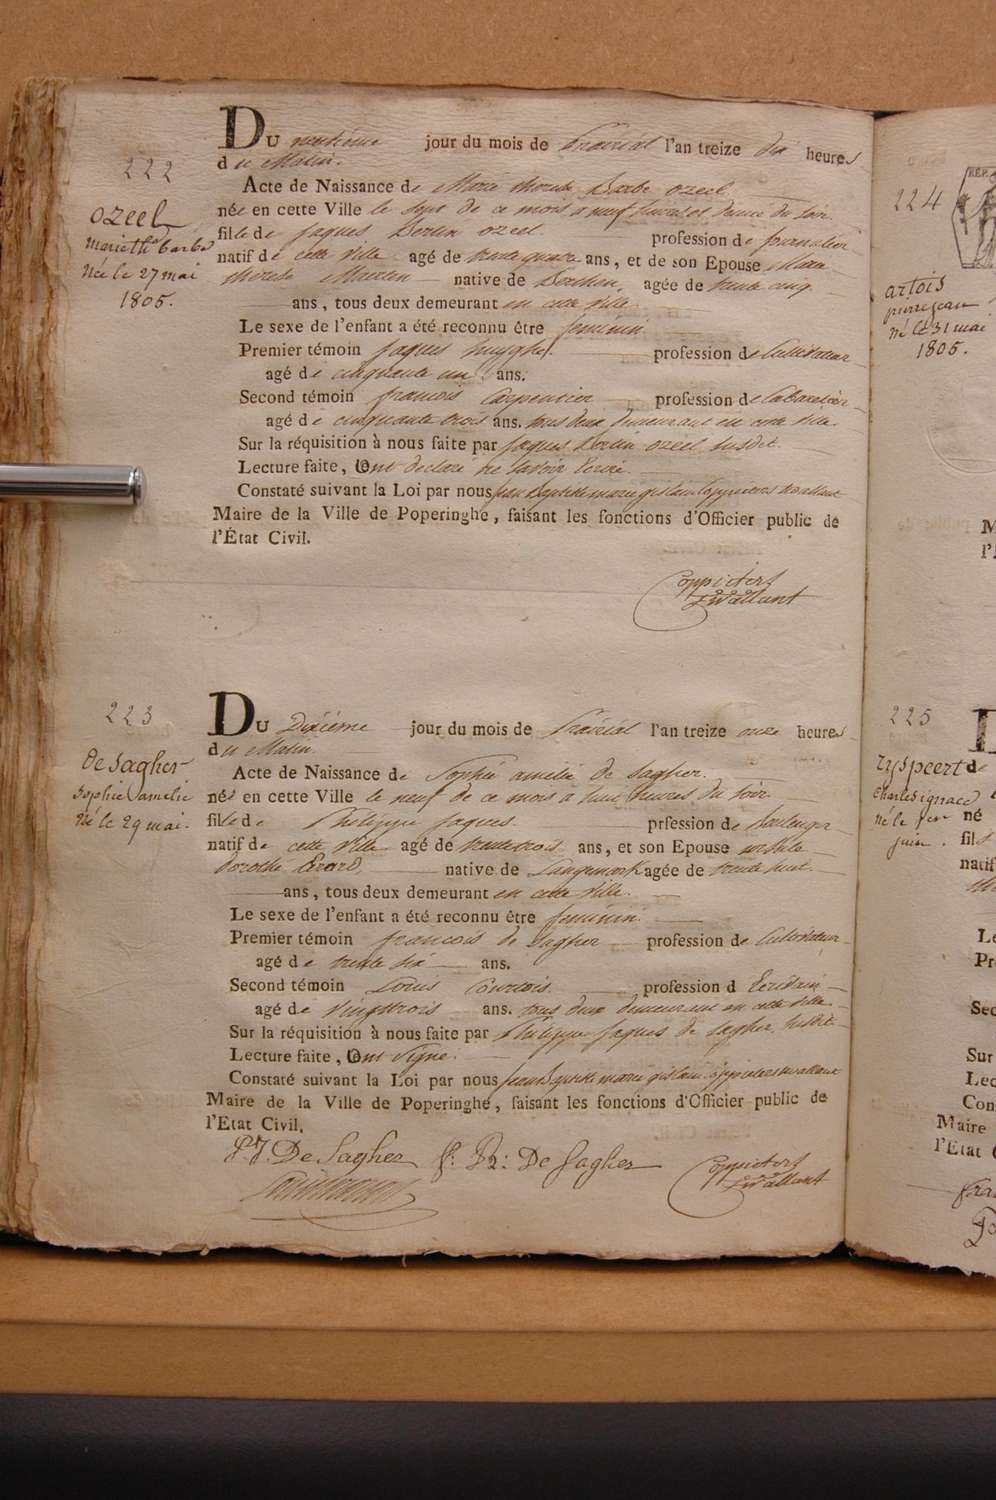 222
ozeel
marie the barbe
née le 27 mai
1805.
DU neuvième jour du mois de Prairial l'an treize dix heures
du Matin.
Acte de Naissance de Marie therese Barbe ozeel
née en cette Ville le sept de ce mois a neuf heures et demie du soir
fille de Jaques Bertin ozeel profession de journalier
natif de cette ville agé de trente quatre ans, et de son Epouse Marie
therese Maerten native de agée de trente cinq
ans, tous deux demeurant en cette ville
Le sexe de l'enfant a été reconnu être feminin
Premier témoin Jaques huyghe. profession de Cultivateur
agé de cinquante un ans.
Second témoin françois Carpentier profession de Cabaretier
agé de cinquante trois ans. tous deux demeurant en cette ville.
Sur la réquisition à nous faite par Jaques Bertin ozeel susdit
Lecture faite, Ont declaré ne savoir Ecrire
Constaté suivant la Loi par nous jean Baptiste marie gislain Coppieters twallant
Maire de la Ville de Poperinghe, faisant les fonctions d'Officier public de
l'État Civil.
Coppieters
Twallant
223
De Sagher
Sophie amelie
né le 29 mai.
DU Dixième jour du mois de Prairial l'an treize onze heures
du Matin
Acte de Naissance de Sophie amélie de Sagher.
née en cette Ville le neuf de ce mois a huit heures du soir
fille de Philippe Jaques prfession de Boulenger
natif de cette Ville agé de trente trois ans, et son Epouse ursule
Dorothé Erard, native de Langemarck agée de trente huit
ans, tous deux demeurant en cette Ville.
Le sexe de l'enfant a été reconnu être feminin
Premier témoin françois de Sagher profession de Cultivateur
agé de trente six ans.
Second témoin Louis Courtois. profession d Ecrivain
agé de Vingt trois ans. tous deux demeurant en cette ville
Sur la réquisition à nous faite par Philippe Jaques de Sagher susdit
Lecture faite, Ont signé.
Constaté suivant la Loi par nous jean Baptiste marie gislain Coppieters twallant
Maire de la Ville de Poperinghe, faisant les fonctions d'Officier public de
l'Etat Civil.
P. J. De Sagher f: B: De Sagher Coppieters
Twallant
224
REP.
artois
pierre jean
né le 31 mai
1805.
M
l'
225
ryspeert
charles ignace
né le 1er
juin.
D
de
né
fils
natif
Le
Pr
Sec
Sur
Lec
Con
Maire
l'Etat
fra